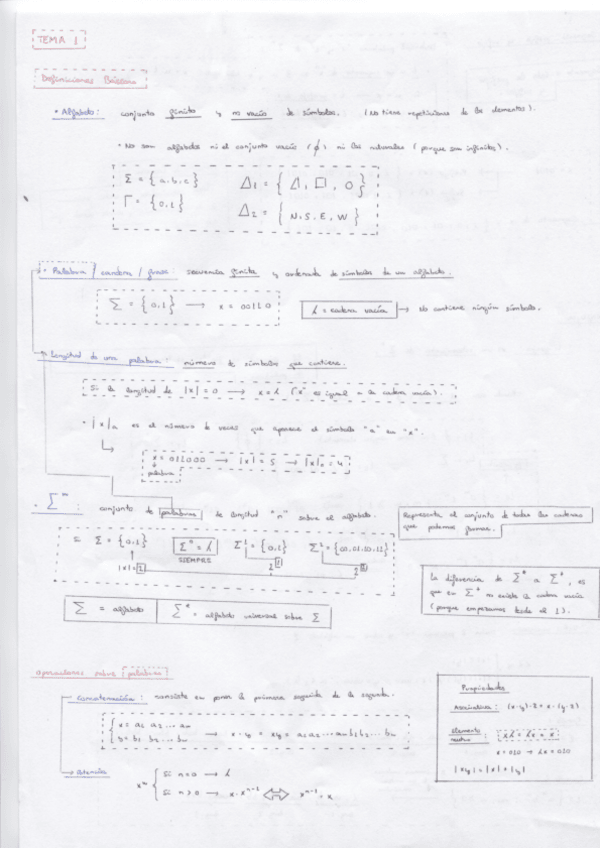 TEMA 1
Definiciones Básicas
• Alfabeto: conjunto finito y no vacío de símbolos. (No tiene repeticiones de los elementos).
• No son alfabetos ni el conjunto vacío (ϕ) ni los naturales (porque son infinitos).
Σ = {a,b,c}
Γ = {0,1}
Δ1 = {△, □, O}
Δ2 = {N,S,E,W}
• Palabra / cadena / frase: secuencia finita y ordenada de símbolos de un alfabeto.
Σ = {0,1} → x = 00110
λ = cadena vacía → No contiene ningún símbolo.
Longitud de una palabra: número de símbolos que contiene.
Si la longitud de |x| = 0 → x = λ ("x" es igual a la cadena vacía).
• |x|a es el número de veces que aparece el símbolo "a" en "x".
palabra
• Σⁿ: conjunto de palabras de longitud "n" sobre el alfabeto.
Representa el conjunto de todas las cadenas
que podemos formar.
Si Σ = {0,1} Σ⁰ = λ Σ¹ = {0,1} Σ² = {00,01,10,11}
SIEMPRE
La diferencia de Σ* a Σ⁺, es
que en Σ⁺ no existe la cadena vacía
(porque empezamos desde el 1).
Σ = alfabeto
Σ* = alfabeto universal sobre Σ
Operaciones sobre palabras
→ Concatenación: consiste en poner la primera seguida de la segunda.
x = a1 a2 ... am
y = b1 b2 ... bn → x·y = xy = a1a2...am b1b2...bn
Propiedades
Asociativa: (x·y)·z = x·(y·z)
elemento neutro xλ = λx = x
x = 010 → λx = 010
|xy| = |x|+|y|
→ Potencia
xⁿ { Si n=0 → λ
Si n>0 → x·xⁿ⁻¹ ⇔ xⁿ⁻¹·x